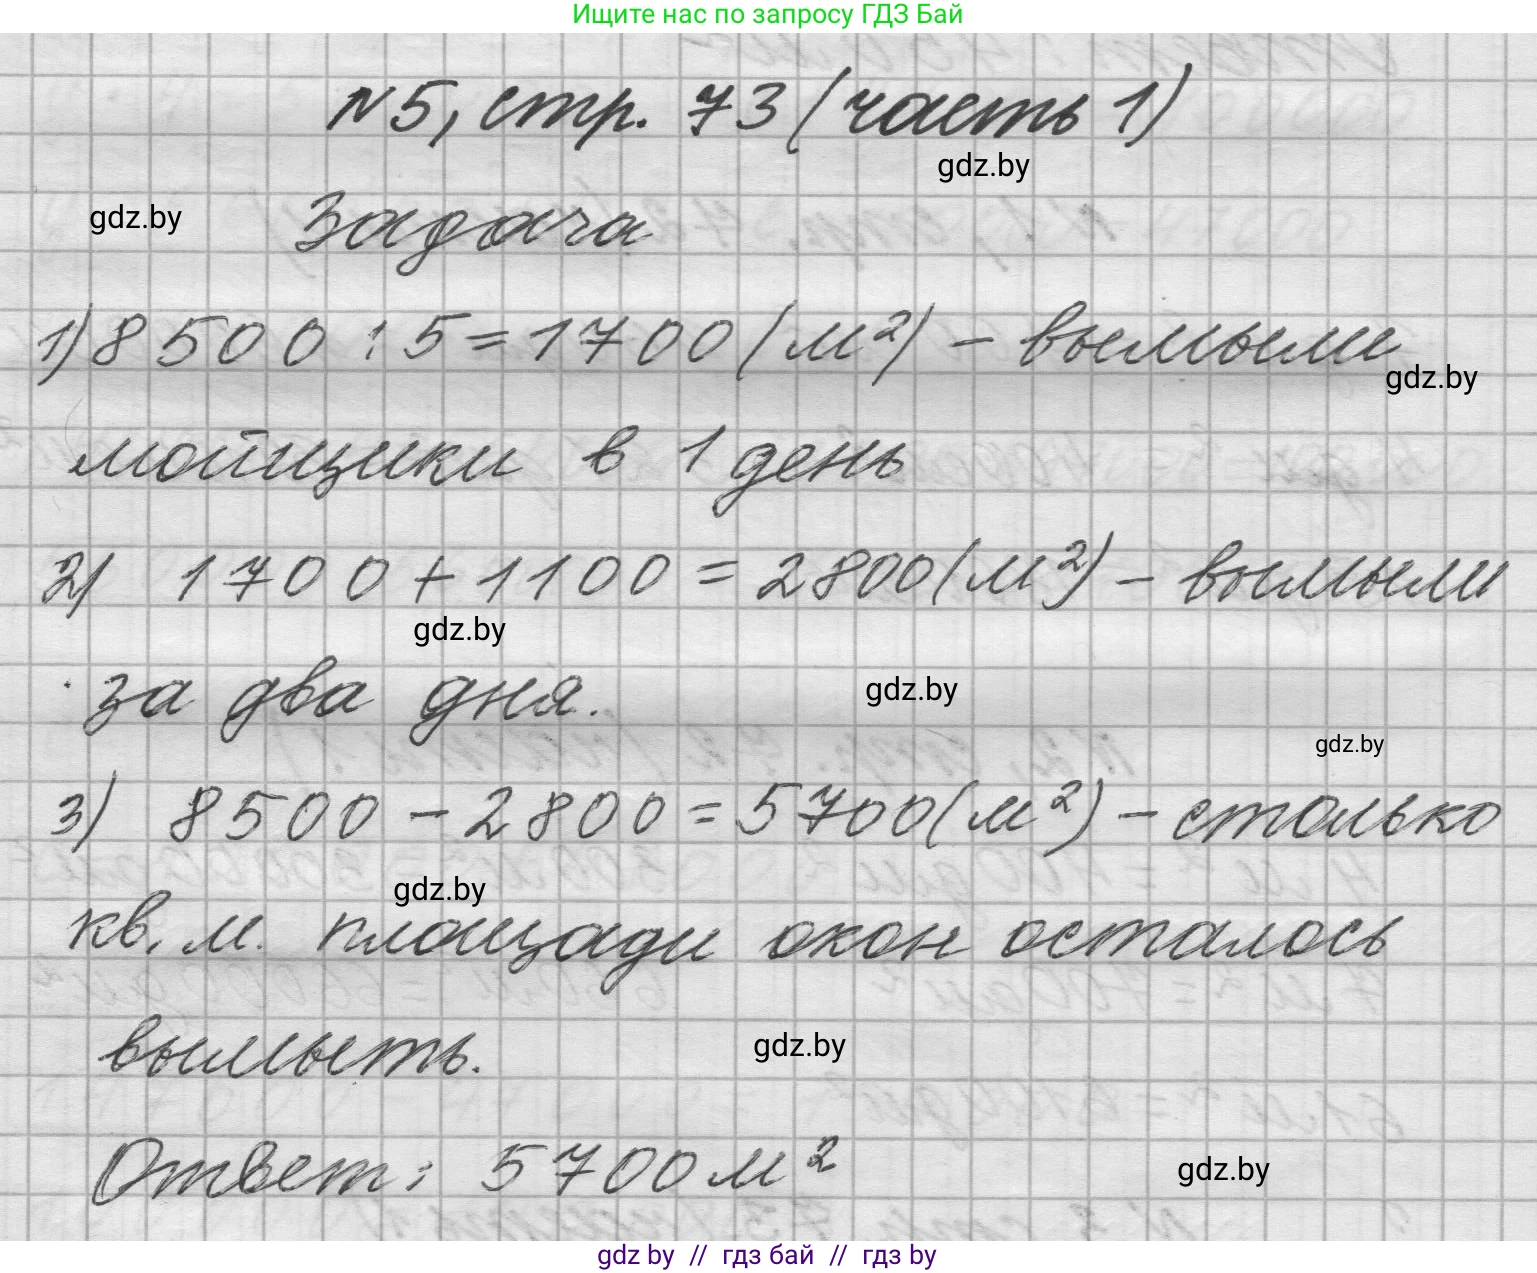 Ищите нас по запросу ГДЗ Бай
№5, стр. 73 (часть 1)
gdz.by
gdz.by
Задача
1) 8500 : 5 = 1700 (м²) – вымыли
gdz.by
мойщики в 1 день
2) 1700 + 1100 = 2800 (м²) – вымыли
gdz.by
за два дня.
gdz.by
gdz.by
3) 8500 – 2800 = 5700 (м²) – столько
gdz.by
кв. м. площади окон осталось
вымыть.
gdz.by
Ответ: 5700 м²
gdz.by
gdz by // гдз бай // гдз by